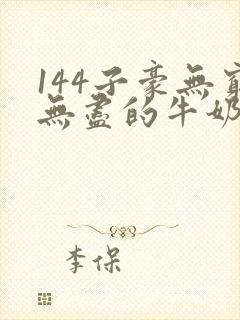 144子豪無窮
無盡的牛奶
李保